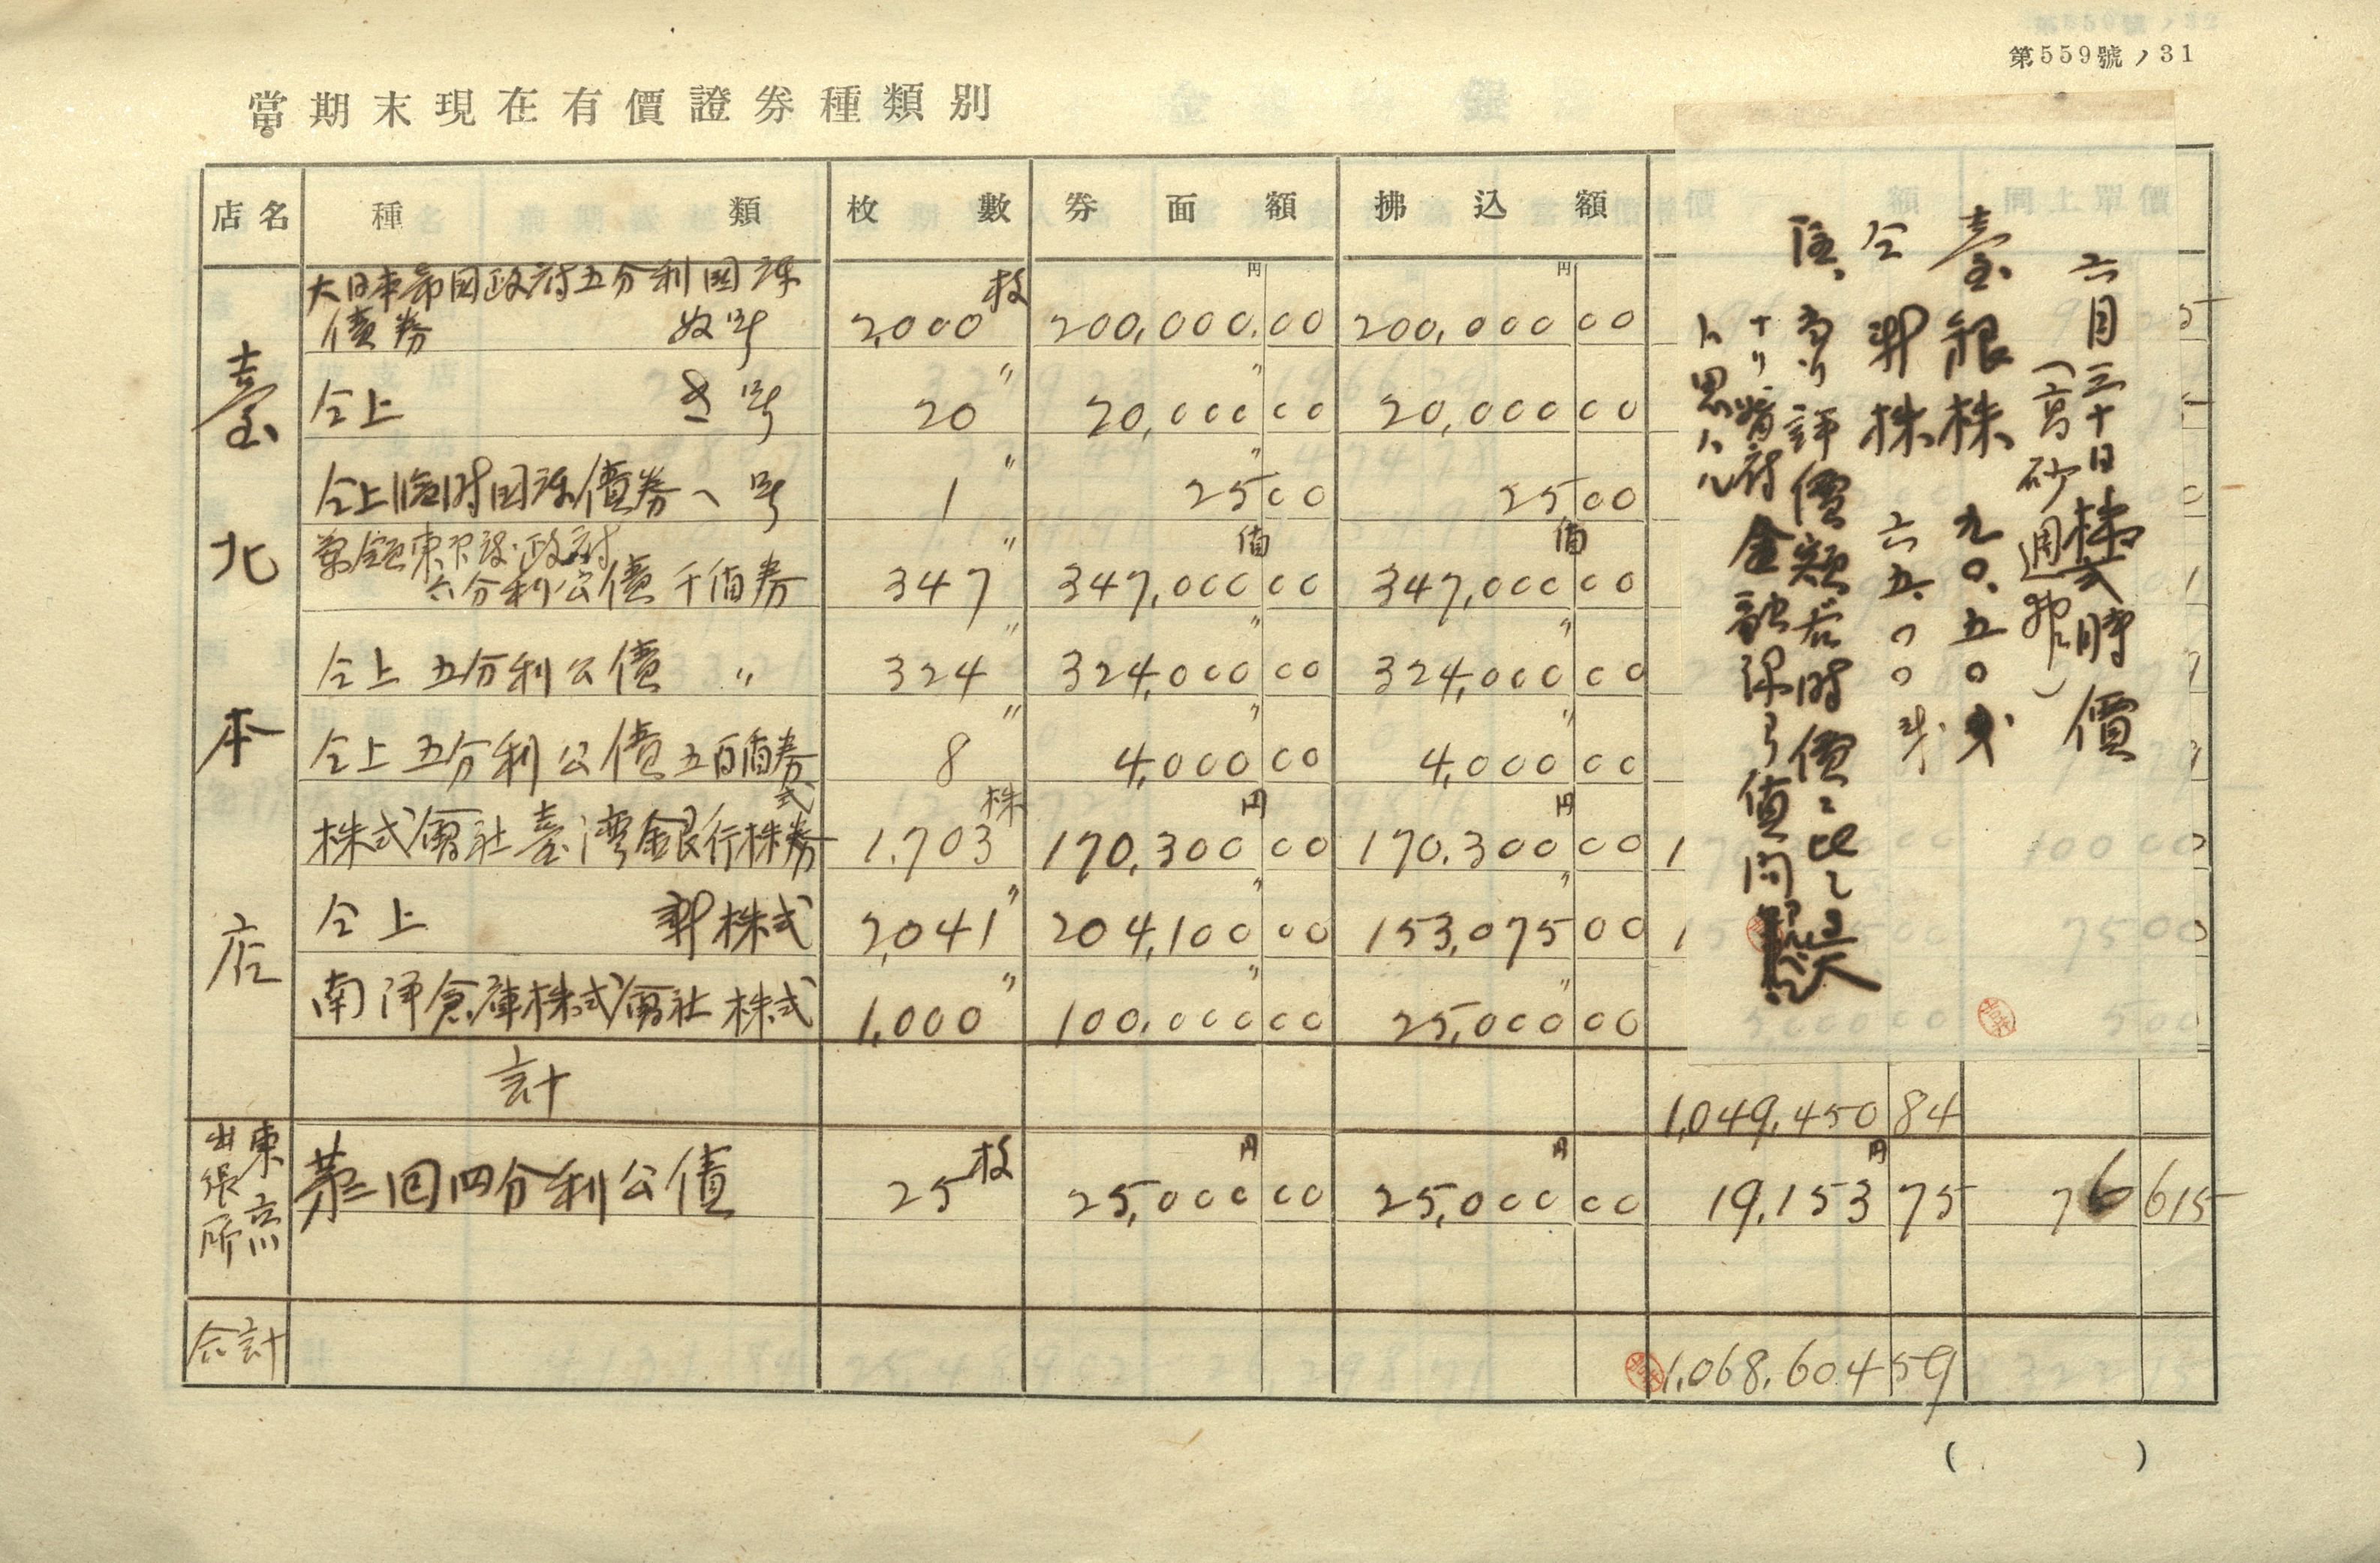 第559號ノ31
當期末現在有價證券種類別
店名 種類 枚數 券面額 拂込額 價額 同上單價
臺北本店
大日本帝国政府五分利国庫
債券 ぬ号 2,000枚 200,000.00 200,000 00
仝上 き号 20〃 20,000 00 20,000 00
仝上臨時国庫債券へ号 1〃 25 00 25 00
六分利公債千佛券 347〃 347,000 00 347,000 00
仝上 五分利公債 〃 324〃 324,000 00 324,000 00
仝上 五分利公債五百佛券 8〃 4,000 00 4,000 00
株式會社臺湾銀行株式券 1,703株 170,300 00 170,300 00
仝上 新株式 2,041〃 204,100 00 153,075 00
南洋倉庫株式會社株式 1,000〃 100,000 00 25,000 00
計 1,049,450 84
東京出張所 第二回四分利公債 25枚 25,000 00 25,000 00 19,153 75 76 615
合計 1,068,604 59
( )
六月三十日株式時價
臺銀株 九〇.五〇
仝新株 六五.〇〇